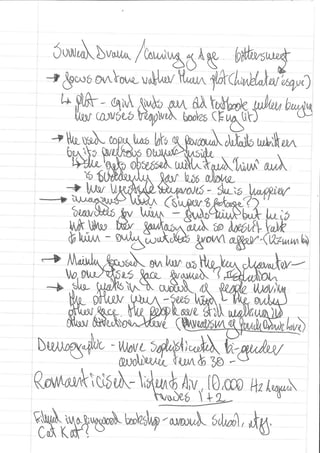 Surreal Drama / Coming of Age bittersweet
→ focus on tone rather than plot (Linklateresque)
↳ plot - girl finds an old textbook when buying
her courses required books (Eng lit)
→ the used copy has lots of personal details written
by its previous owner inside
↳ she gets obsessed with it and 'him' and
is suddenly far less alone
→ her lifestyle improves - she is happier
→ imagines him (super 8 footage?)
searches for him - finds him but he is
not like her fantasy and so doesn't talk
to him - only watches from afar
→ Mainly focused on her as the key character -
no one elses face framed?
→ she walks in a crowd of people moving
the other way - sees him - the only
other face the people are still walking in
other direction
Demographic - more sophisticated bi-gender
audience teen to 30 -
Romanticised - listen to Air, 10,000 Hz Legend
tracks 1 + 2
Filmed in a bookshop - around school, etc.
Cat Kat?